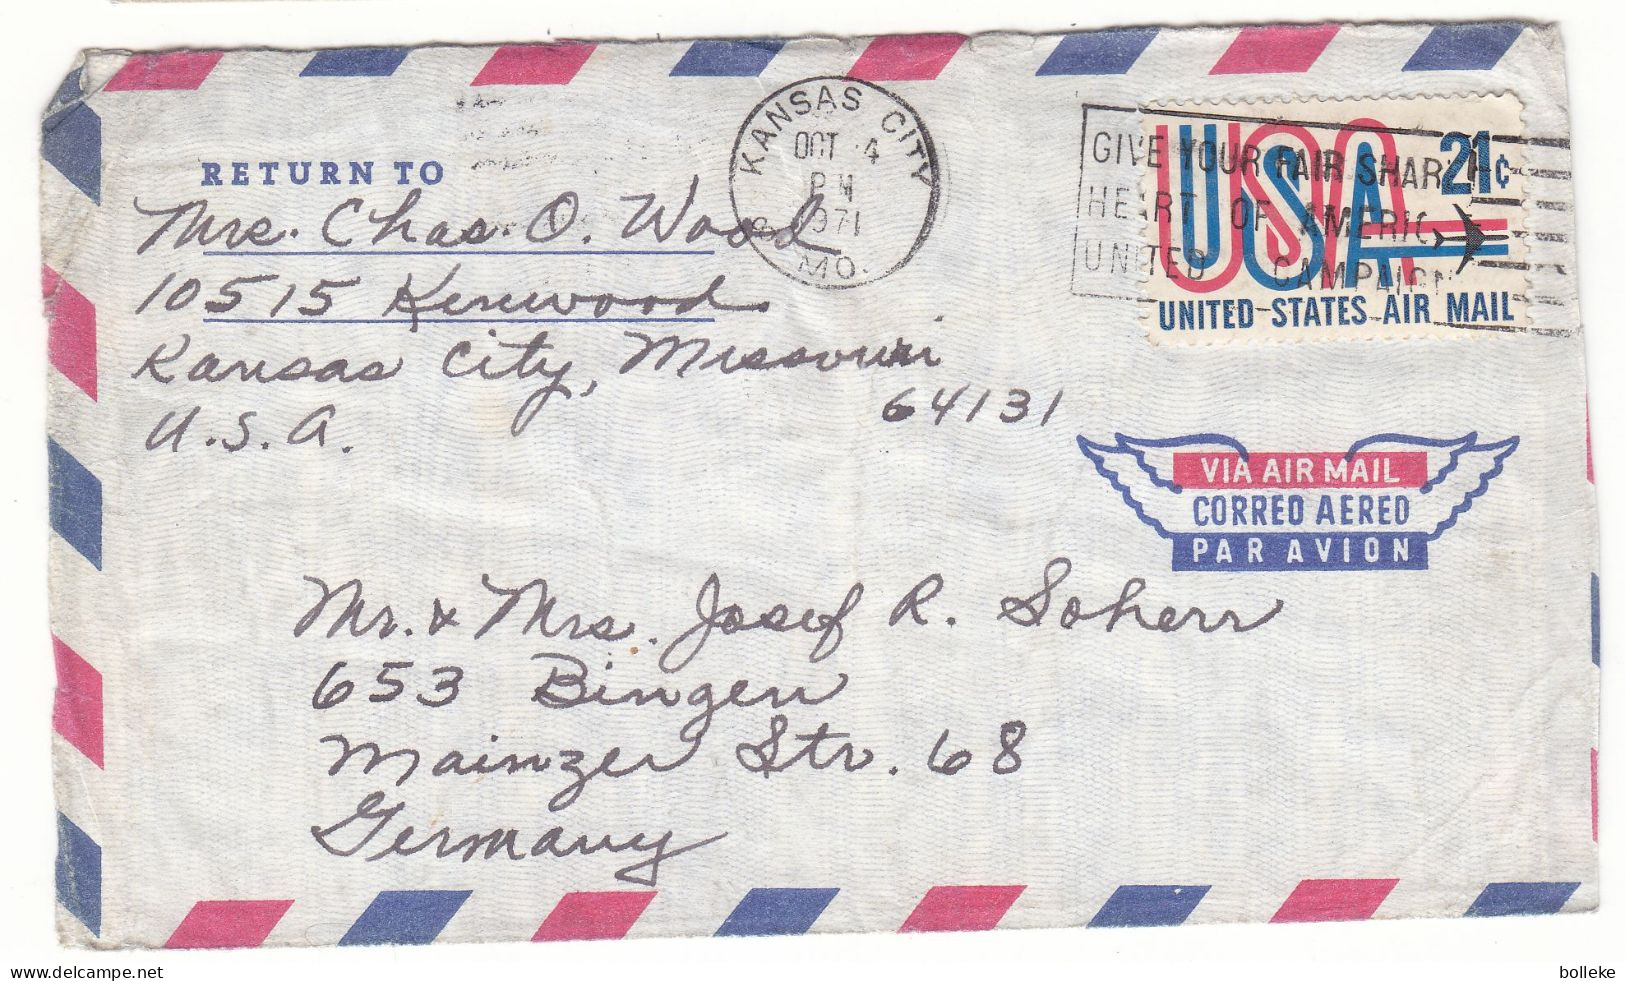 RETURN TO
Mrs. Chas. O. Wood
10515 Kenwood
Kansas City, Missouri
64131
U.S.A.
KANSAS CITY
OCT 4
PM
1971
MO.
GIVE YOUR FAIR SHARE
HEART OF AMERICA
UNITED CAMPAIGN
USA
21¢
UNITED STATES AIR MAIL
VIA AIR MAIL
CORREO AEREO
PAR AVION
Mr. & Mrs. Josef R. Soherr
653 Bingen
Mainzer Str. 68
Germany
www.delcampe.net
bolleke